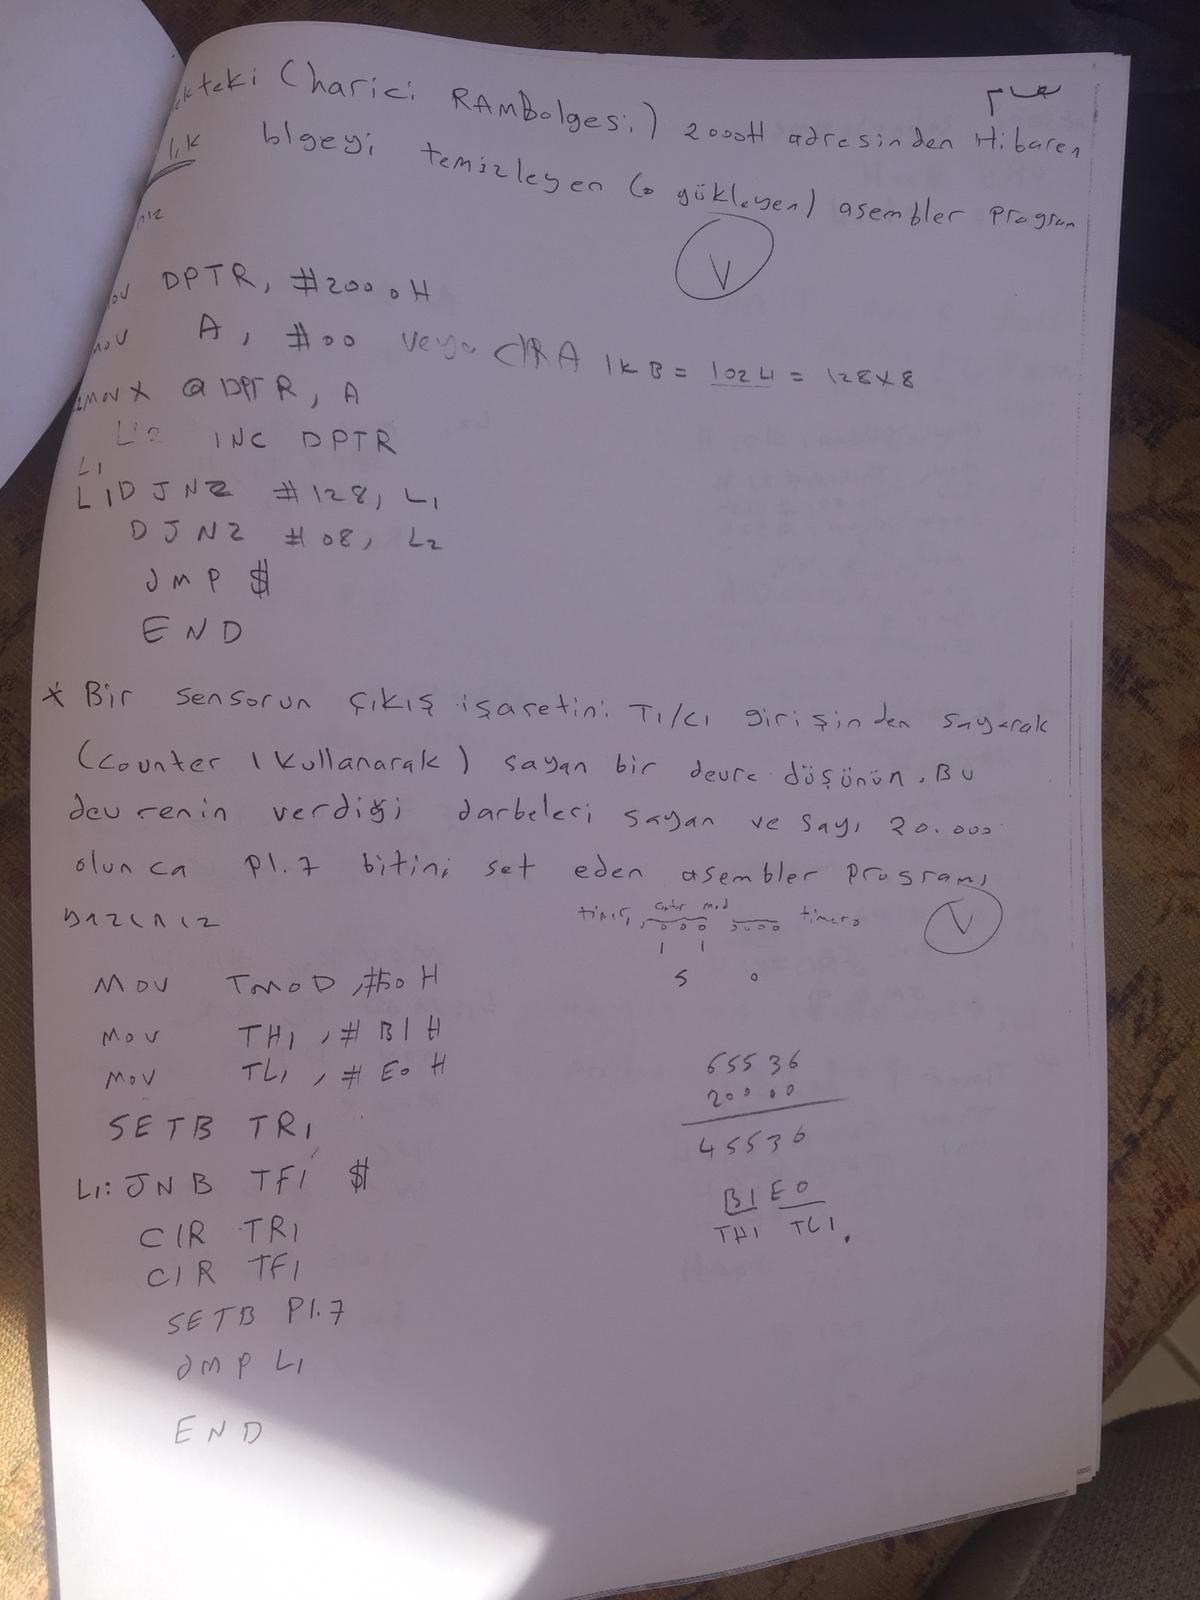 ekteki (harici RAMbolgesi) 2000H adresinden itibaren
مهم
1,K blgeyi temizleyen (0 yükleyen) asembler program
nız
mov DPTR, #2000H
mov A, #00 veya ClR A 1KB = 1024 = 128x8
L2 movx @DPTR, A
L2 INC DPTR
L1
L1 DJNZ #128, L1
DJNZ #08, L2
JMP $
END
* Bir sensorun çıkış işaretini T1/C1 girişinden sayarak
(counter 1 kullanarak) sayan bir devre düşünün. Bu
devrenin verdiği darbeleri sayan ve sayı 20.000
olunca P1.7 bitini set eden asembler programı
yazınız
timer1 contor mod timer0
0000 0000
1 1
5 0
Mov TMOD, #50H
Mov TH1, #B1H
Mov TL1, #E0H
SETB TR1
L1: JNB TF1 $
ClR TR1
ClR TF1
SETB P1.7
JMP L1
END
65536
20000
45536
B1 E0
TH1 TL1.